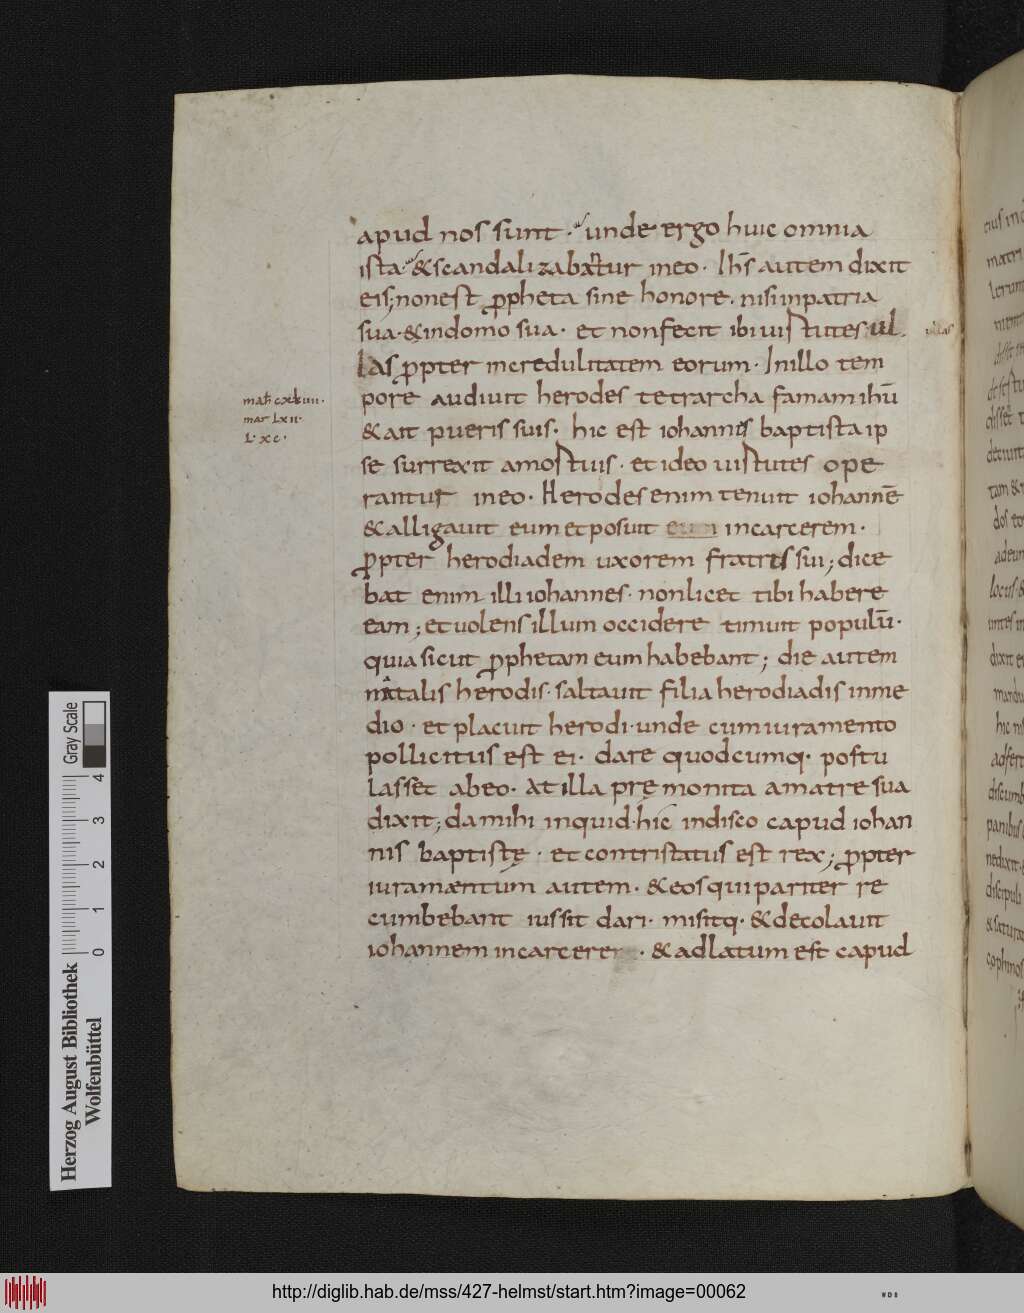 apud nos sunt · unde ergo huic omnia
ista · & scandalizabantur in eo · Ihs̄ autem dixit
eis; non est ꝓpheta sine honore · nisi in patria
sua · & in domo sua · et non fecit ibi uirtutes · ul
las ꝓpter incredulitatem eorum · In illo tem
pore audiuit herodes tetrarcha famam ihū
& ait pueris suis · hic est iohannis baptista ip
se surrexit a mortuis · et ideo uirtutes ope
rantur in eo · Herodes enim tenuit iohannē
& alligauit eum et posuit eum in carcerem ·
ꝓpter herodiadem uxorem fratris sui; dice
bat enim illi iohannes · non licet tibi habere
eam; et uolens illum occidere timuit populū ·
quia sicut ꝓphetam eum habebant; die autem
natalis herodis · saltauit filia herodiadis in me
dio · et placuit herodi · unde cum iuramento
pollicitus est ei · dare quodcumq · postu
lasset ab eo · At illa prę monita a matre sua
dixit; da mihi inquid · hic in disco capud iohan
nis baptistę · et contristatus est rex; ꝓpter
iuramentum autem · & eos qui pariter re
cumbebant iussit dari · misitq · & decolauit
iohannem in carcere · & adlatum est capud
mar lxii ·
l · xc ·
Herzog August Bibliothek
Wolfenbüttel
Gray Scale
0 1 2 3 4
http://diglib.hab.de/mss/427-helmst/start.htm?image=00062